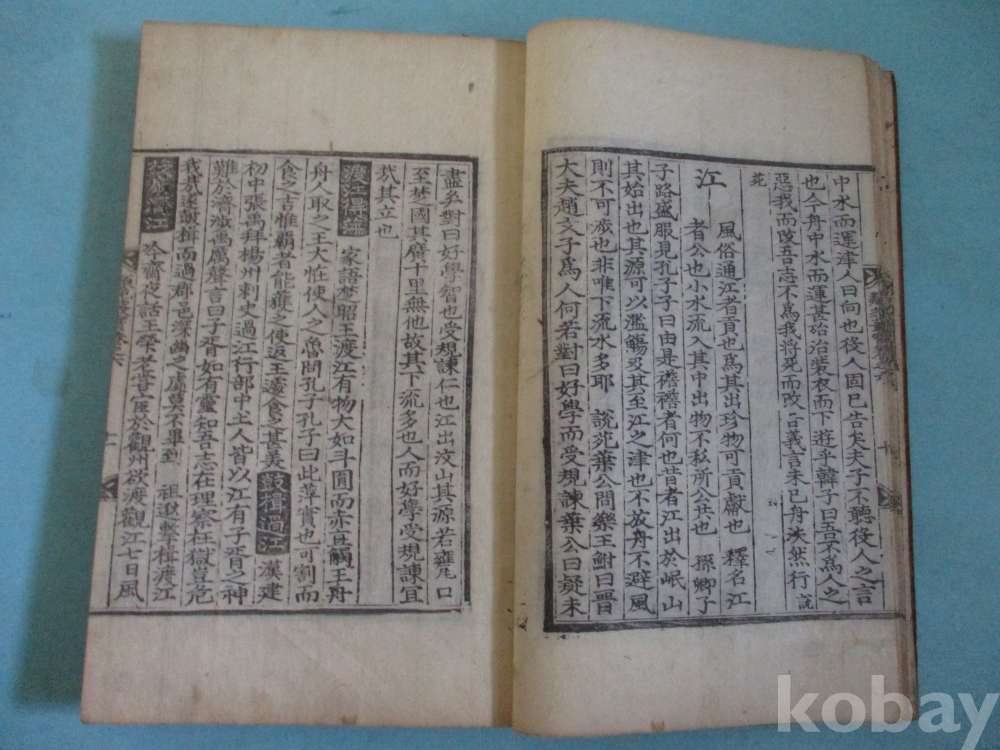 中水而運津人曰向也役人固已告矣夫子不聽役人之言
也今舟中水而運甚殆治裝衣而下遊乎韓子曰吾不爲人之
惡我而改吾志不爲我將死而改吾義言未已舟泆然行說
苑
江
風俗通江者貢也爲其出珍物可貢獻也 釋名江
者公也小水流入其中出物不私所公共也 孫卿子
子路盛服見孔子子曰由是襜襜者何也昔者江出於岷山
其始出也其源可以濫觴及其至江之津也不放舟不避風
則不可渡也非唯下流水多耶 說苑葉公問樂王鮒曰晋
大夫趙文子爲人何若對曰好學而受規諫葉公曰疑未
盡矣對曰好學智也受規諫仁也江出汶山其源若甕口
至楚國其廣十里無他故其下流多也人而好學受規諫宜
㢤其立也
渡江得萍 家語楚昭王渡江有物大如斗圓而赤直觸王舟
舟人取之王大恠使人之魯問孔子孔子曰此萍實也可割而
食之吉惟覇者能獲之使返王遂食之甚美 鼓楫過江 漢建
初中張禹拜楊州刺史過江行部中土人皆以江有子胥之神
難於濟渉禹厲聲言曰子胥如有靈知吾志在理察枉獄豈危
我㢤遂鼓楫而過郡邑深幽之處莫不畢到 祖逖擊楫渡江
冷齋夜話王榮老甞官於觀州欲渡觀江七日風
十
kobay